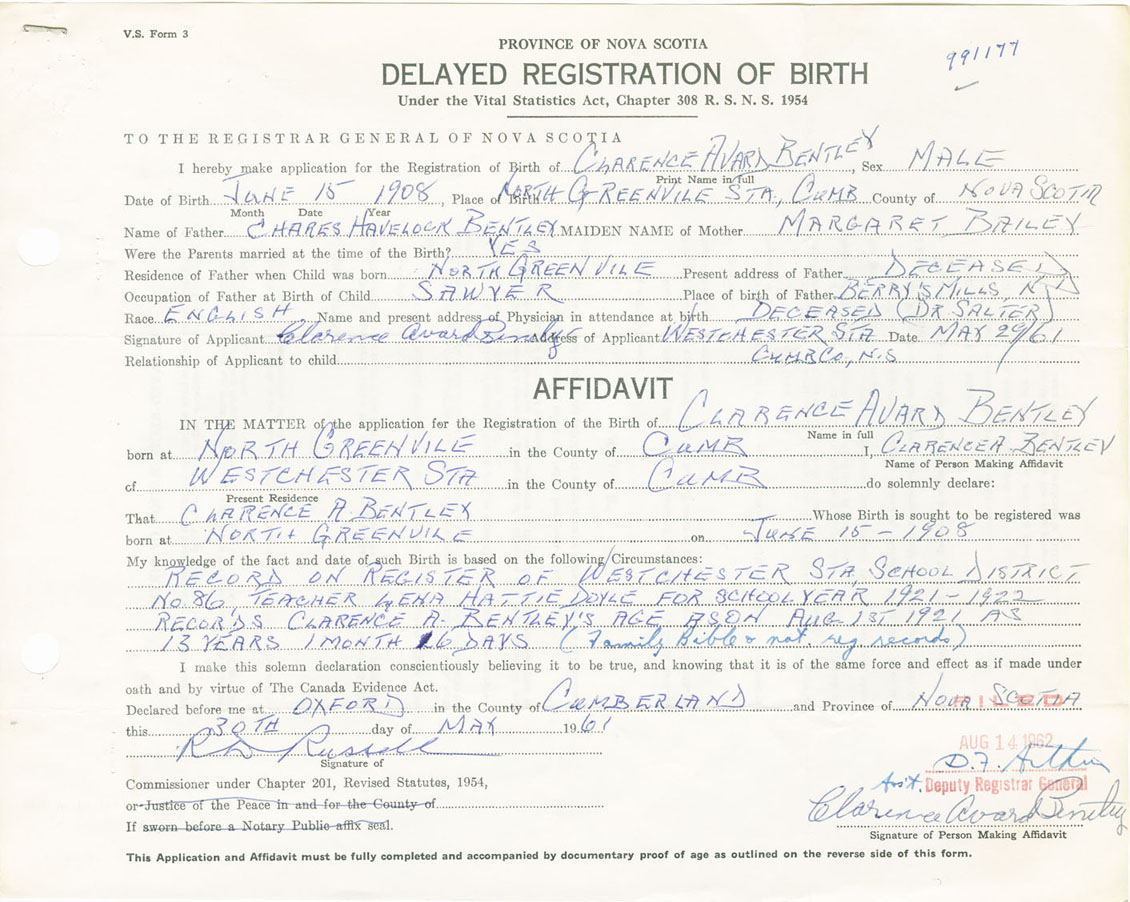 V.S. Form 3
PROVINCE OF NOVA SCOTIA
991177
DELAYED REGISTRATION OF BIRTH
Under the Vital Statistics Act, Chapter 308 R. S. N. S. 1954
TO THE REGISTRAR GENERAL OF NOVA SCOTIA
I hereby make application for the Registration of Birth of CLARENCE AVARD BENTLEY, Sex MALE
Print Name in full
Date of Birth JUNE 15 1908, Place of Birth NORTH GREENVILE STA., CUMB County of NOVA SCOTIA
Month Date Year
Name of Father CHARES HAVELOCK BENTLEY MAIDEN NAME of Mother MARGARET BAILEY
Were the Parents married at the time of the Birth? YES
Residence of Father when Child was born NORTH GREENVILE Present address of Father DECEASED
Occupation of Father at Birth of Child SAWYER Place of birth of Father BERRY'S MILLS, N.
Race ENGLISH Name and present address of Physician in attendance at birth DECEASED (DR SALTER)
Signature of Applicant Clarence Avard Bentley Address of Applicant WESTCHESTER STA Date MAY 29/61
Relationship of Applicant to child CUMB CO, N.S
AFFIDAVIT
IN THE MATTER of the application for the Registration of the Birth of CLARENCE AVARD BENTLEY
Name in full
born at NORTH GREENVILE in the County of CUMB I, CLARENCE A. BENTLEY
Name of Person Making Affidavit
of WESTCHESTER STA in the County of CUMB do solemnly declare:
Present Residence
That CLARENCE A. BENTLEY Whose Birth is sought to be registered was
born at NORTH GREENVILE on JUNE 15 - 1908
My knowledge of the fact and date of such Birth is based on the following Circumstances:
RECORD ON REGISTER OF WESTCHESTER STA. SCHOOL DISTRICT
NO. 86, TEACHER LENA HATTIE DOYLE FOR SCHOOL YEAR 1921-1922
RECORDS CLARENCE A. BENTLEY'S AGE AS ON AUG 1ST 1921 AS
13 YEARS 1 MONTH 16 DAYS (Family Bible & nat. reg records)
I make this solemn declaration conscientiously believing it to be true, and knowing that it is of the same force and effect as if made under
oath and by virtue of The Canada Evidence Act.
Declared before me at OXFORD in the County of CUMBERLAND and Province of NOVA SCOTIA
FILED
this 30TH day of MAY 1961
AUG 14 1962
Russell
Signature of
D.F.
Commissioner under Chapter 201, Revised Statutes, 1954,
Ass't. Deputy Registrar General
or Justice of the Peace in and for the County of
Clarence Avard Bentley
If sworn before a Notary Public affix seal.
Signature of Person Making Affidavit
This Application and Affidavit must be fully completed and accompanied by documentary proof of age as outlined on the reverse side of this form.